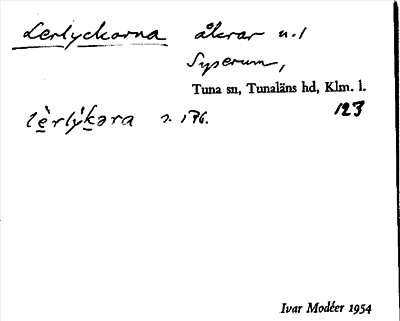 Lerlyckorna åkrar n.1
Syserum,
Tuna sn, Tunaläns hd, Klm. l.
123
lè̱rlýḵəra s. 176.
Ivar Modéer 1954